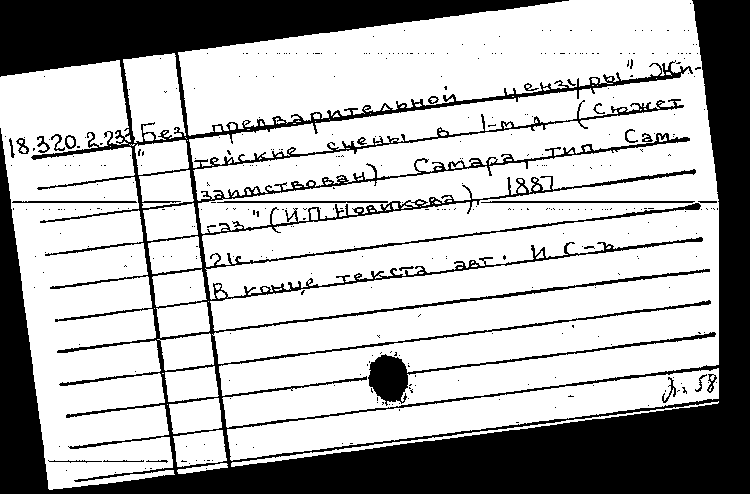 18.320.2.233 "Без предварительной цензуры". Жи-
тейские сцены в 1-м д. (Сюжет
заимствован). Самара, тип. "Сам.
газ." (И.П. Новикова), 1887.
21с.
В конце текста авт.: И. С-ъ
58